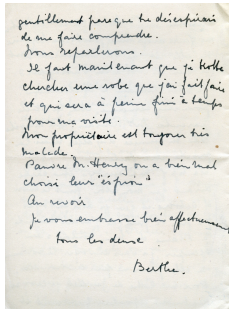 gentillement parce que tu désespérais
de me faire comprendre.
Nous reparlerons.
Il faut maintenant que je trotte
chercher une robe que j'ai fait faire
et qui sera à peine fini à temps
pour ma visite.
Mon propriétaire est toujours très
malade.
Pauvre M. Henry on a bien mal
choisi leur "espion"
Au revoir
Je vous embrasse bien affectueusement
tous les deux
Berthe.